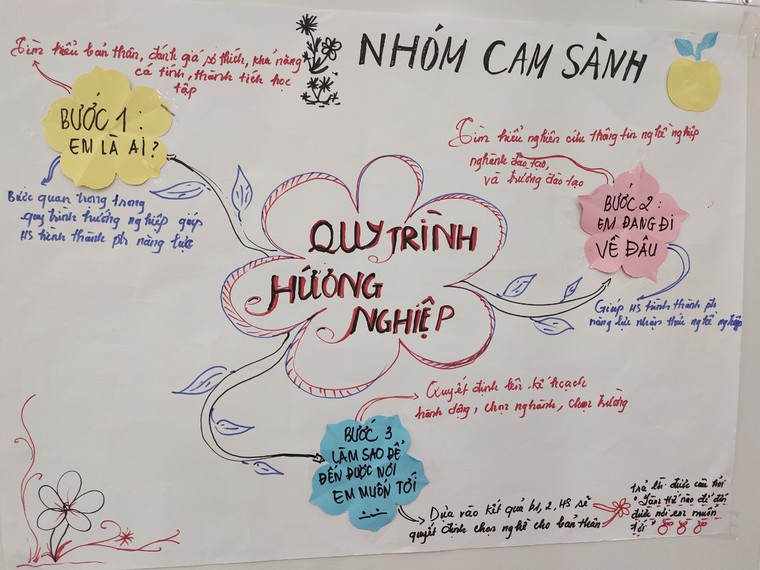 NHÓM CAM SÀNH
Tìm hiểu bản thân, đánh giá sở thích, khả năng
cá tính, thành tích học
tập
BƯỚC 1:
EM LÀ AI?
Bước quan trọng trong
quy trình hướng nghiệp giúp
HS hình thành ptr năng lực
QUY TRÌNH
HƯỚNG
NGHIỆP
Tìm hiểu nghiên cứu thông tin nghề nghiệp
nghành đào tạo,
và trường đào tạo
BƯỚC 2:
EM ĐANG ĐI
VỀ ĐÂU
Giúp HS hình thành ptr
năng lực nhận thức nghề nghiệp
Quyết định lên kế hoạch
hành động, chọn nghành, chọn trường
BƯỚC 3
LÀM SAO ĐỂ
ĐẾN ĐƯỢC NƠI
EM MUỐN TỚI
...
Dựa vào kết quả b1, 2, HS sẽ
quyết định chọn nghề cho bản thân
trả lời được câu hỏi
"Làm thế nào để đến
được nơi em muốn
tới"